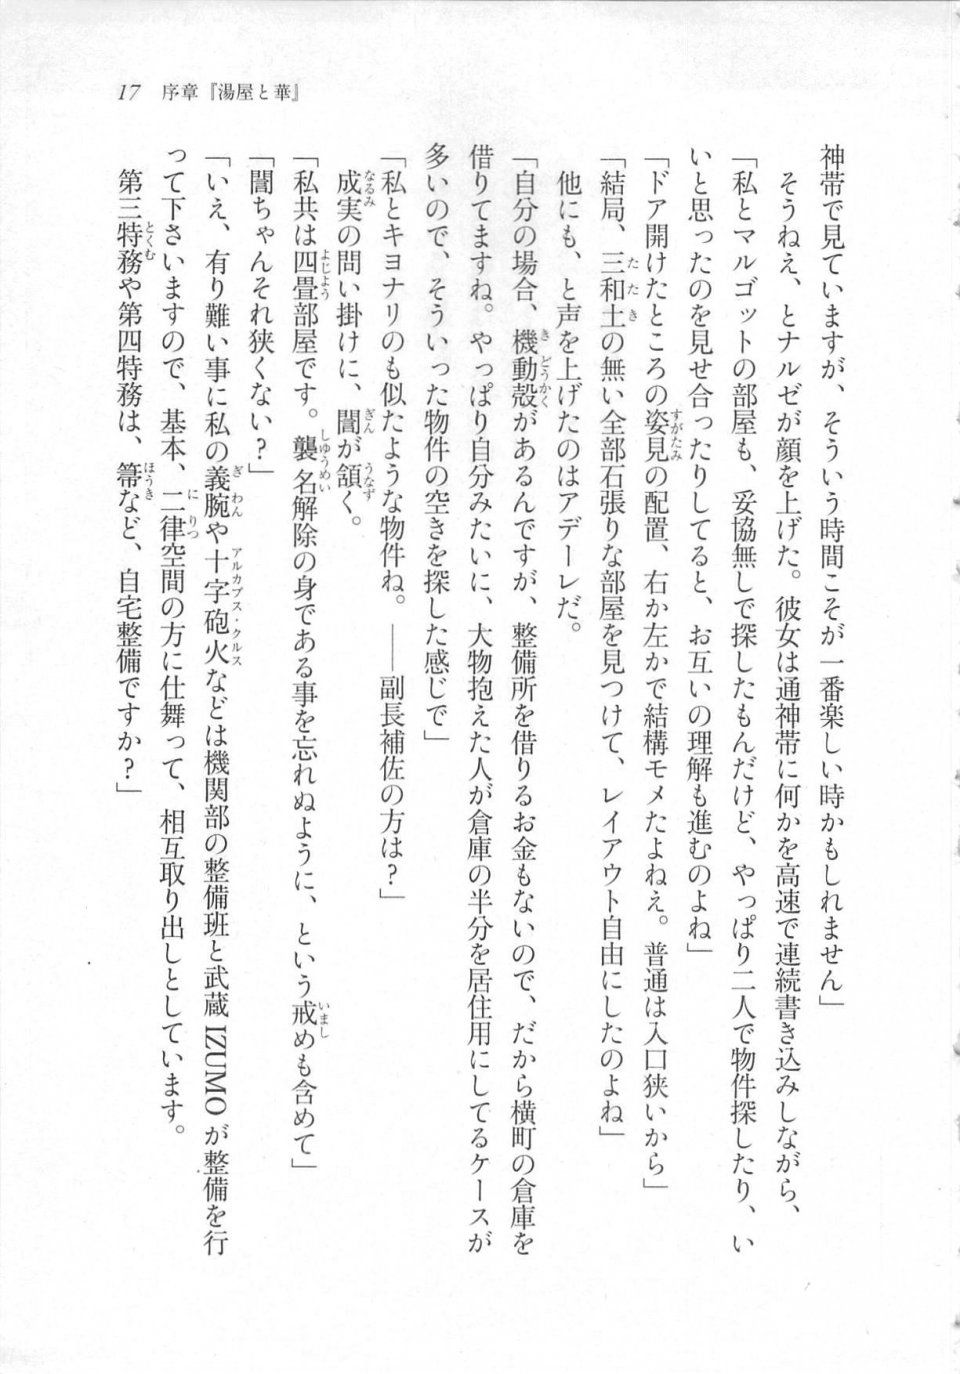 17　序章『湯屋と華』
神帯で見ていますが、そういう時間こそが一番楽しい時かもしれません」
　そうねえ、とナルゼが顔を上げた。彼女は通神帯に何かを高速で連続書き込みしながら、
「私とマルゴットの部屋も、妥協無しで探したもんだけど、やっぱり二人で物件探したり、い
いと思ったのを見せ合ったりしてると、お互いの理解も進むのよね」
「ドア開けたところの姿見の配置、右か左かで結構モメたよねえ。普通は入口狭いから」
「結局、三和土の無い全部石張りな部屋を見つけて、レイアウト自由にしたのよね」
　他にも、と声を上げたのはアデーレだ。
「自分の場合、機動殻があるんですが、整備所を借りるお金もないので、だから横町の倉庫を
借りてますね。やっぱり自分みたいに、大物抱えた人が倉庫の半分を居住用にしてるケースが
多いので、そういった物件の空きを探した感じで」
「私とキヨナリのも似たような物件ね。――副長補佐の方は？」
　成実の問い掛けに、誾が頷く。
「私共は四畳部屋です。襲名解除の身である事を忘れぬように、という戒めも含めて」
「誾ちゃんそれ狭くない？」
「いえ、有り難い事に私の義腕や十字砲火などは機関部の整備班と武蔵IZUMOが整備を行
って下さいますので、基本、二律空間の方に仕舞って、相互取り出しとしています。
　第三特務や第四特務は、箒など、自宅整備ですか？」